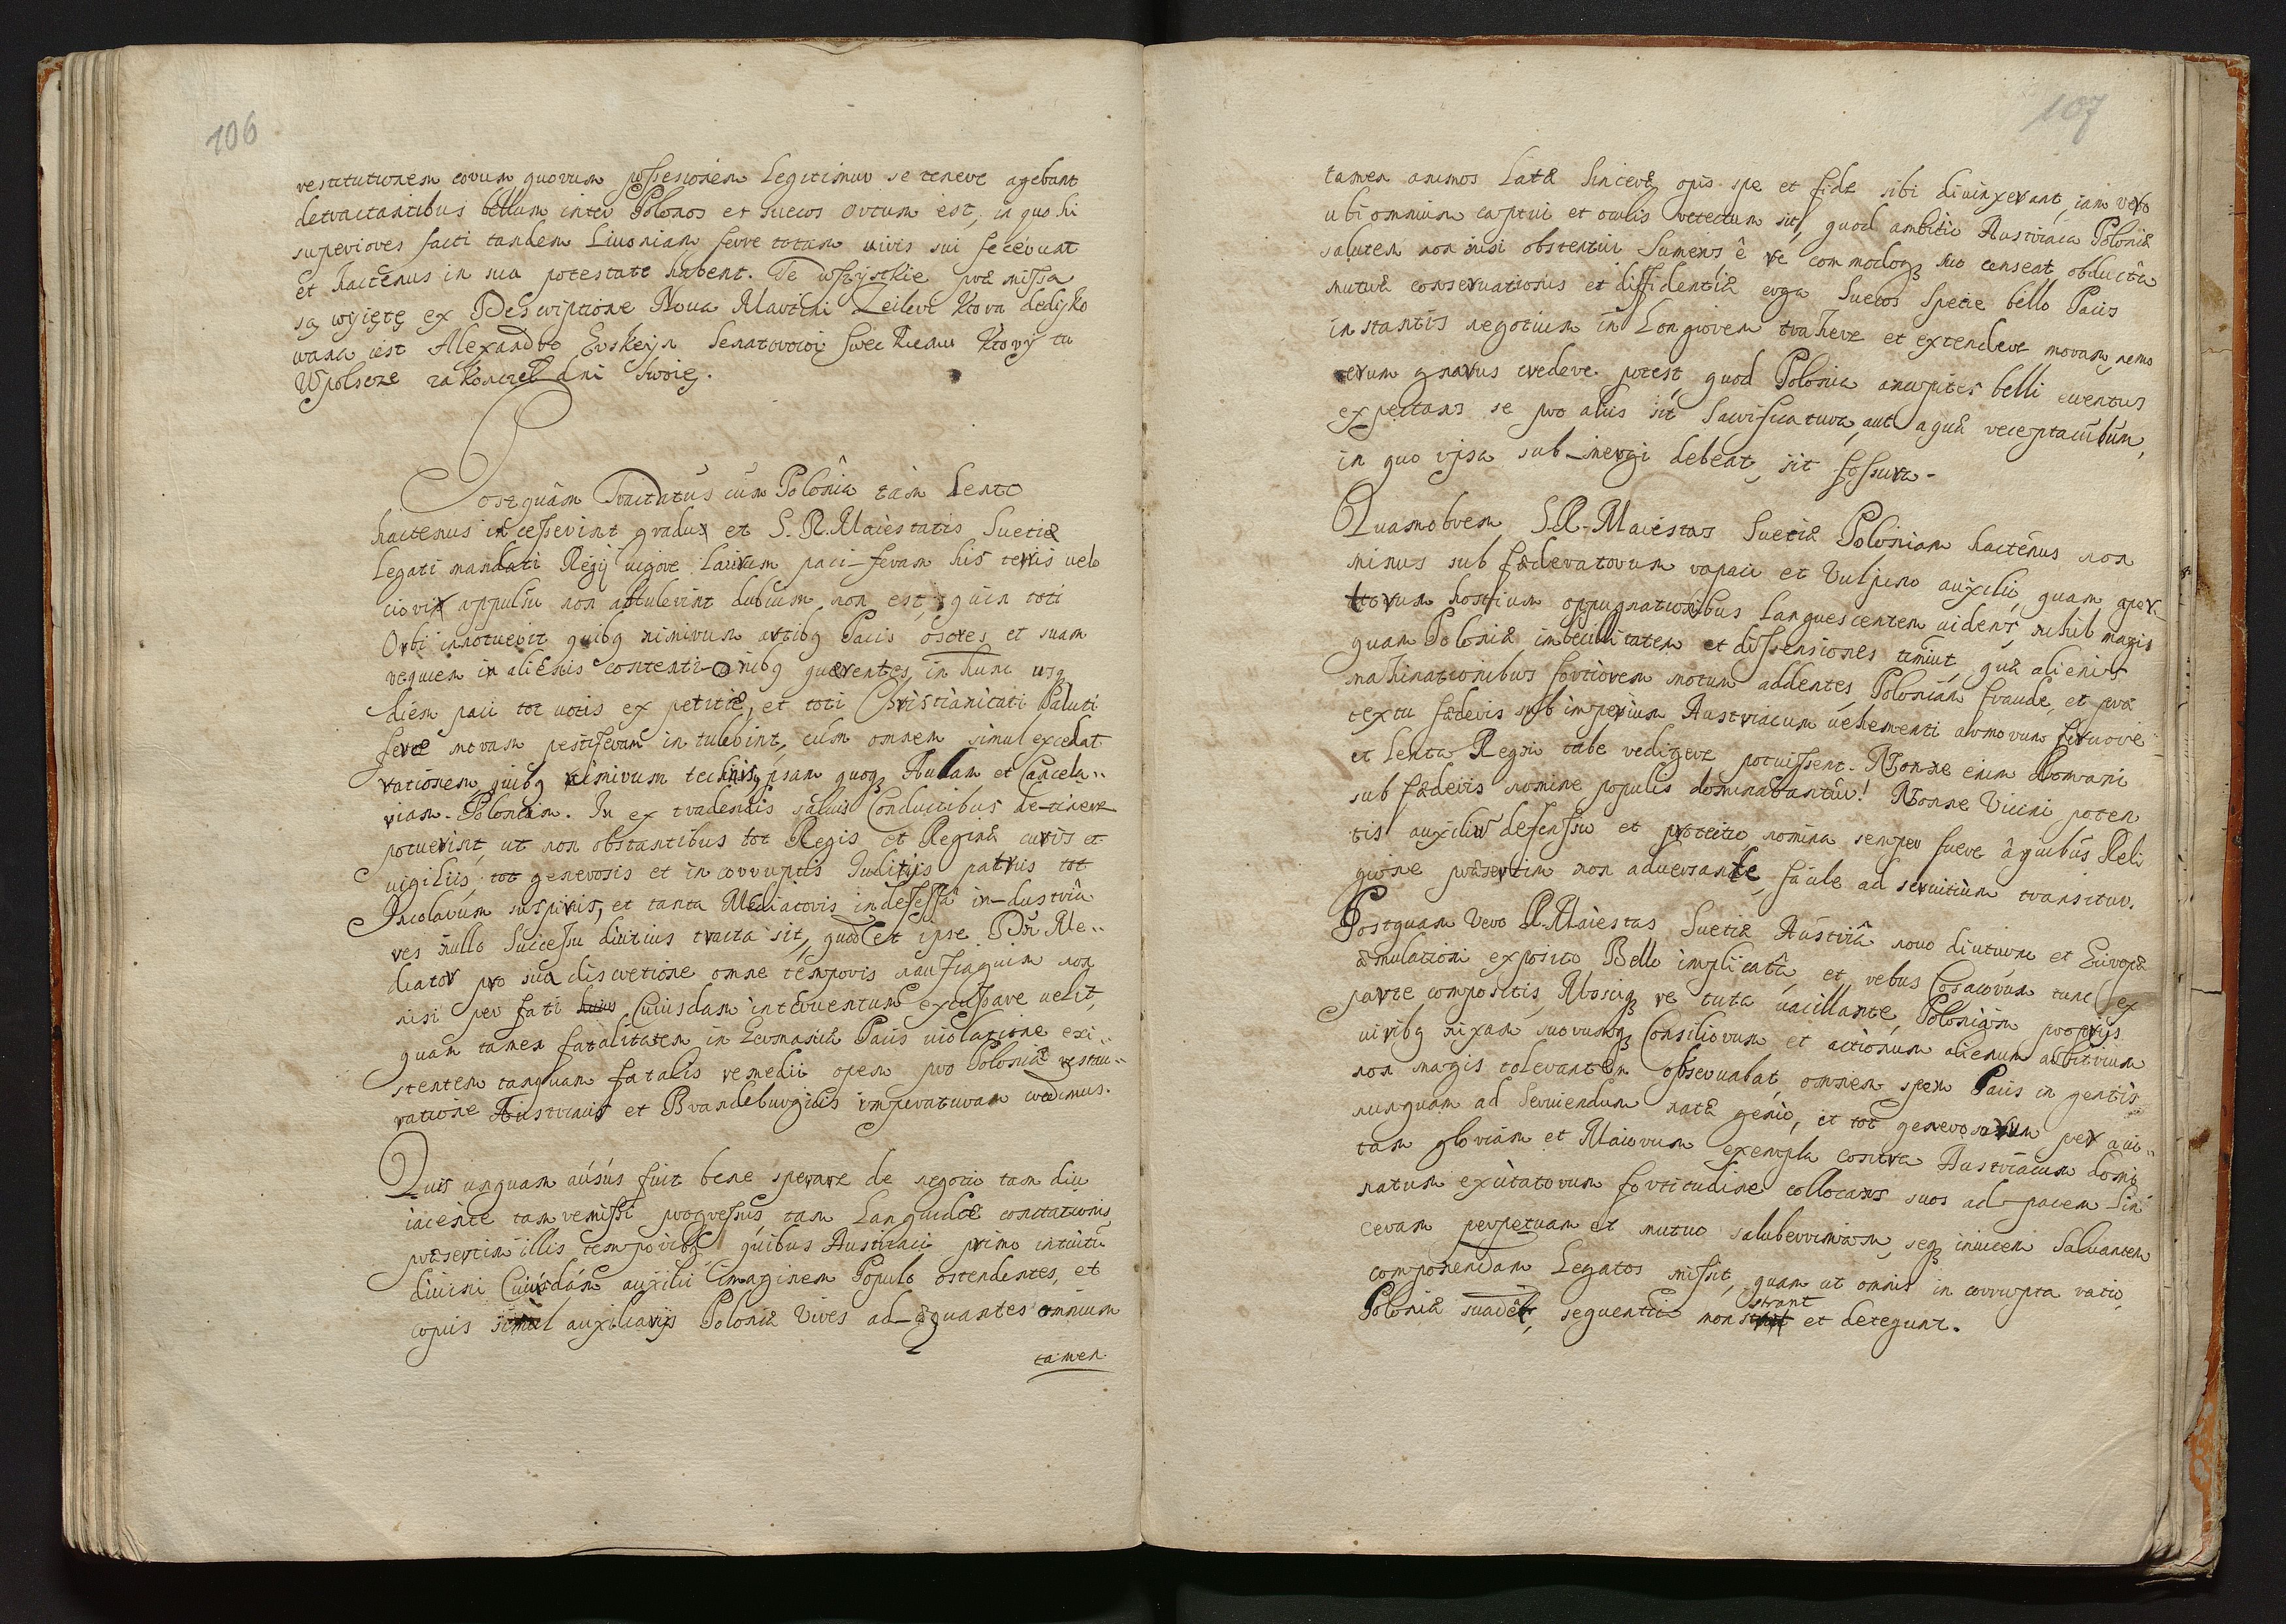 106
restitutionem eorum quorum possesionem Legitimuv se tenere agebant
detractantibus bellum inter Polonos et suecos ortum est, in quo hi
superiores facti tandem Livoniam ferre totam iuris sui fecerunt
et hactenus in sua potestate habent. Te wszystkie præmissa
są wyięte ex Descriptione Noua Martini Zeileri Ktora dedyko
wana iest Alexandro Erskeijn Senatorowi Szwec Kiemu Ktorÿ tu
W polscze zakonczeł dni swoie.
Postquàm Tractatus cùm Polônia tàm Lento
hactenus incesserint gradu, et S. R. Maiestatis Suetiæ
Legati mandati Regij uigore Laurum paci-feram his terris uelo
ciori appulsu non attulerint dubium non est, quin toti
Orbi innotuerit quibq nimirum artibq Pacis osores et suam
requiem in alienis contenti-onibq quærentes, in hunc usq
diem paci tot uotis ex petitæ, et toti Christianitati Saluti
feræ moram pestiferam in tulerint, cùm omnem simul excedat
rationem, quibq nimirum technis, ipsam quoqz Aulam et Cancela"
riam. Poloniam. In ex tradendis saluis Conductibus de-tinere
potuerint, ut non obstantibus tot Regis et Reginæ curis et
uigiliis, tot generosis et in corruptis Iuditijs patriis tot
Incolarum suspiriis, et tanta Mediatoris indefessâ in-dustriâ
res nullo Successu diutius tracta sit, quod et ipse Dn̄ Me"
diator pro sua discretione omne temporis naufragium non
nisi per fati huius Cuiusdam interuentum excussare uelit,
quam tamen fatalitatem in Germaniâ Pacis uiolatione exi"
stentem tanquam fatalis remedii opem pro Poloniæ restau"
ratione Austriacis et Brandeburgicis imperaturam credimus.
Quis unquam aúsús fuit bene sperare de negotio tam diu
iacente tam remissi progressus, tam Languidæ concitationis
præsertim illis temporibq quibus Austriaci primo intuitú
diuini Cuiusdám auxilii imaginem Populo ostendentes, et
copiis simul auxiliarijs Poloniæ Vires ad-æquantes omnium
tamen
107
tamen animos Latæ Sinceræ opis spe et fide sibi diuinxerant, iam vero
ubi omnium captui et oculis retectum sit, quod ambitio Austriaca Poloniæ
salutem non nisi obstentui Sumens ê re commodoqz suo censeat, obductâ
mutuæ conseruationis et diffidentiæ erga Suecos Specie bello Pacis
instantis negotium in Longiorem trahere et extendere moram, nemo
rerum gnarus credere potest, quod Polonia ancipites belli euentus
expectans se pro aliis sit Sacrificatura, aut aquæ receptaculum,
in quo ipsa sub-mergi debeat, sit fossura-
Quamobrem S.R-Maiestas Suetiæ Poloniam hactenus non
minus sub fæderatorum rapaci et Vulpino auxilio, quam aper-
torum hostium oppugnationibus Languescentem uidens, nihil magis
quam Poloniæ imbecillitatem et dissensiones timuit, quæ alienis
mahinationibus fortiorem motum addentes, Poloniam fraude, et præ
textu fæderis sub imperium Austriacum uehementi armorum feruore
et Lenta Regni tabe redigere potuissent. Nonne enim Romani
sub fæderis nomine populis dominabantur! Nonne Vicini poten
tis auxilium defensio et protectio nomina semper fuere â quibus Reli
gione præsertim non aduersante, facile ad seruitium transitur.
Postquam Vero R.Maiestas Suetiæ Austriâ nouo diuturno et Europæ
æmulationi exposito Bello implicatâ, et rebus Cosacorum tunc ex
parte compositis, Moscuqz re tuta uacillante, Poloniàm proprijs
uiribq nixam suorumqz Consiliorum et actionum alienum arbitrium
non magis tolerantem obseruabat, omnem spem Pacis in gentis
nunquam ad Seruiendum natæ genio, et tot generosarum per aui"
tam gloriam et Maiorum exempla contra Austriacum domi
natum excitatorum fortitudine collocans suos ad pacem Sin
ceram perpetuam et mutuo saluberrimam, seqz inuicem Saluantem
componendam Legatos missit, quam ut omnis in corrupta ratio
Poloniæ suadet, sequentia monstrant et detegunt.